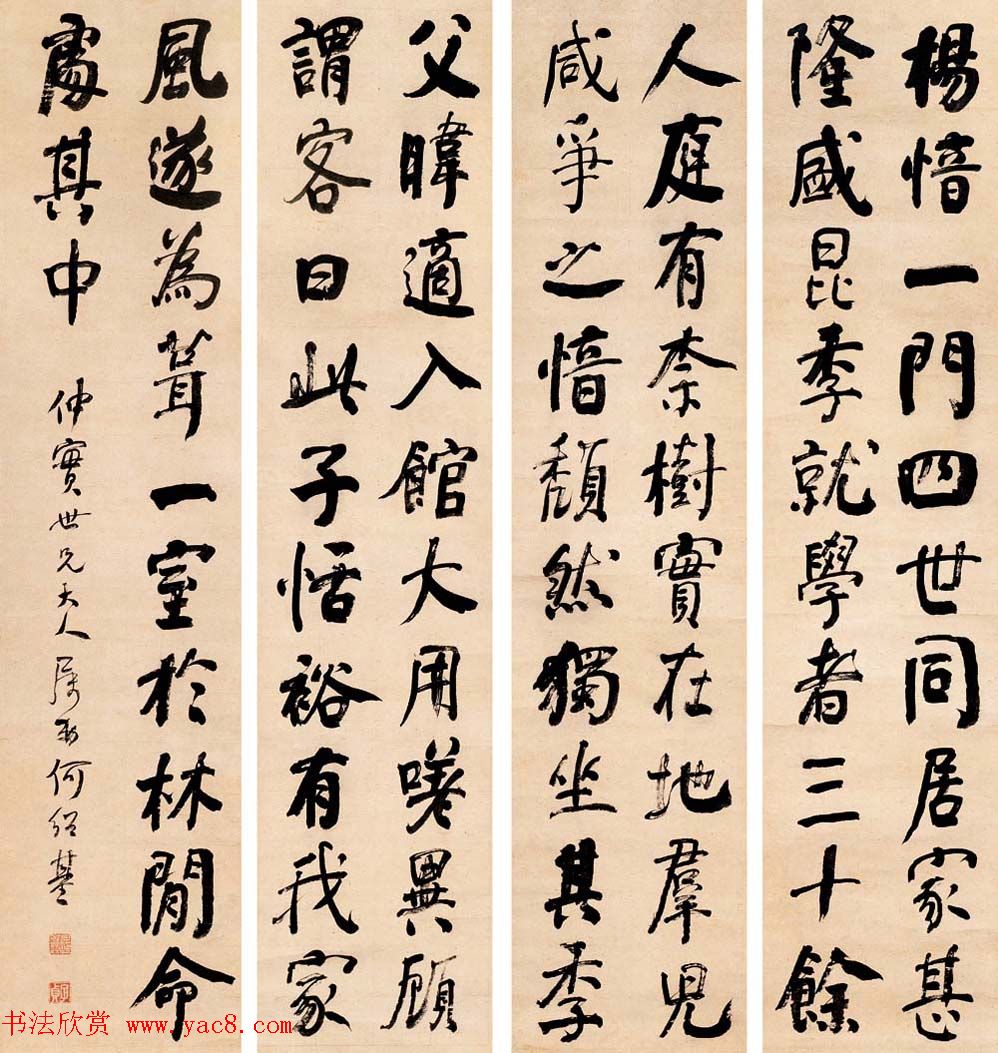 楊愔一門四世同居家甚
隆盛昆季就學者三十餘
人庭有柰樹實在地羣兒
咸爭之愔頹然獨坐其季
父暐適入館大用嗟異顧
謂客曰此子恬裕有我家
風遂為葺一室於林閒命
處其中
仲實世兄大人屬教何紹基
书法欣赏 www.yac8.com